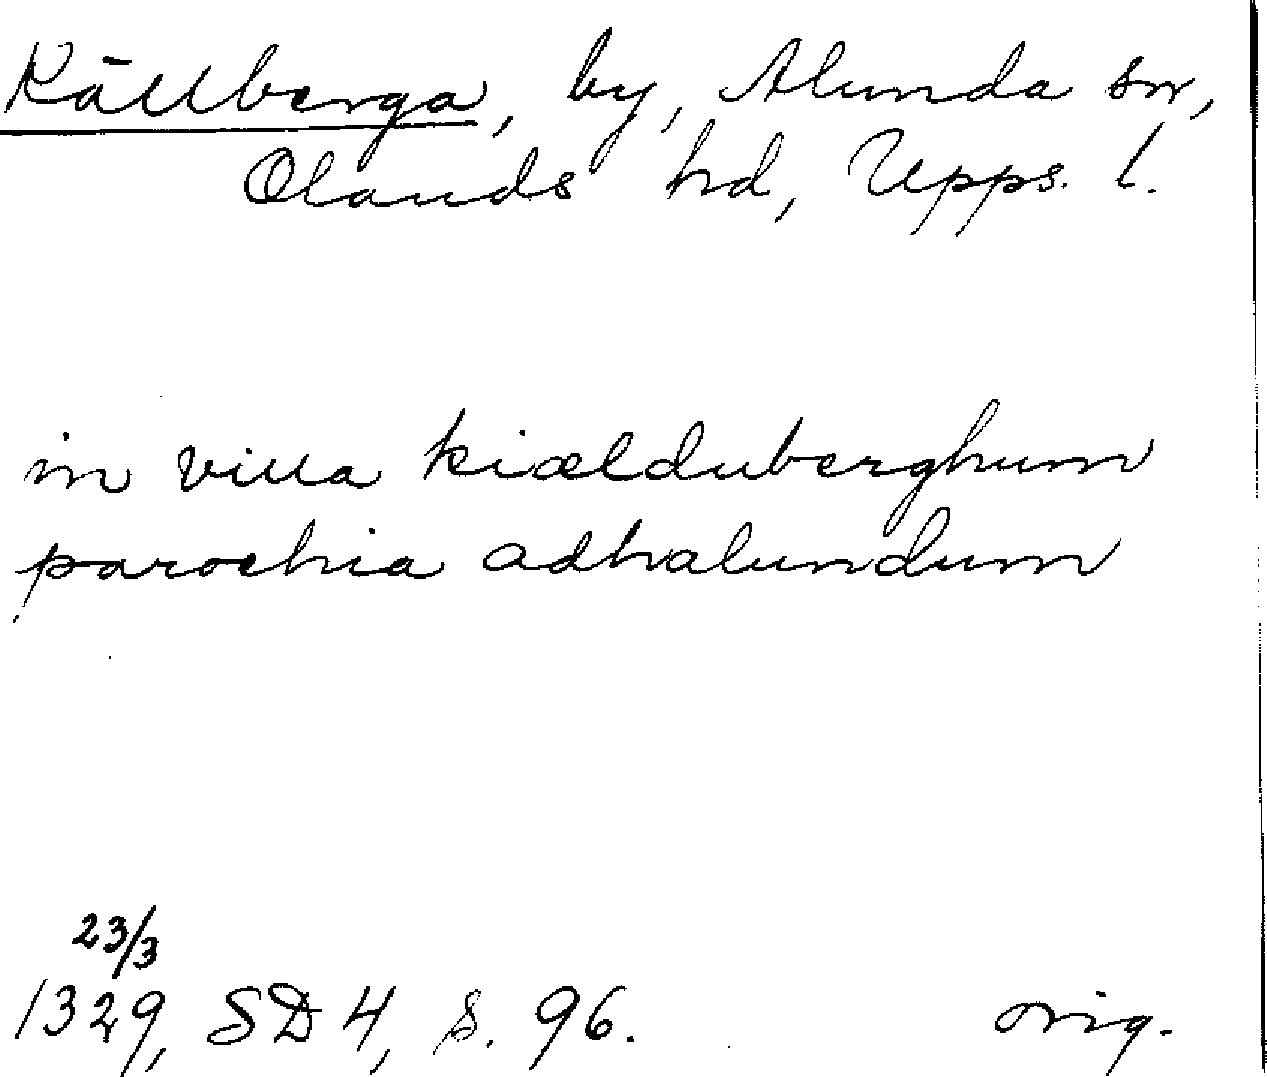 Källberga, by, Alunda sn,
Olands hd, Upps. l.
in villa kiælduberghum
parochia adhalundum
23/3
1329, SD 4, s. 96. orig.